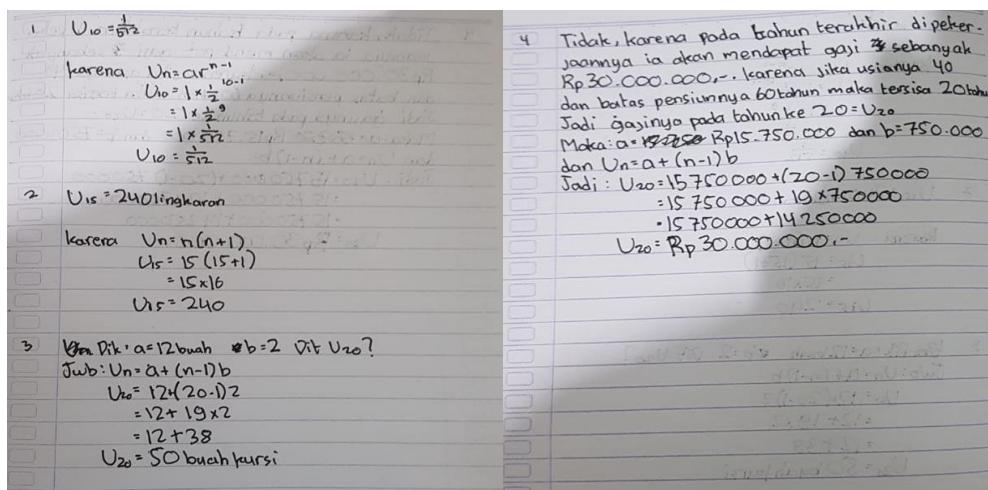 1 U10 = 1/512
karena Un = ar^n-1
U10 = 1 x 1/2^10-1
= 1 x 1/2^9
= 1 x 1/512
U10 = 1/512
2 U15 = 240 lingkaran
karena Un = n(n+1)
U15 = 15(15+1)
= 15x16
U15 = 240
3 Dik: a=12 buah b=2 Dit U20?
Jwb: Un = a + (n-1) b
U20 = 12+(20-1) 2
= 12 + 19 x 2
= 12 + 38
U20 = 50 buah kursi
4 Tidak, karena pada tahun terakhir dipeker-
jaannya ia akan mendapat gaji sebanyak
Rp30.000.000,-. karena jika usianya 40
dan batas pensiunnya 60 tahun maka tersisa 20 tahu
Jadi gajinya pada tahun ke 20 = U20
Maka: a = Rp15.750.000 dan b=750.000
dan Un = a + (n-1) b
Jadi: U20 = 15750000+(20-1) 750000
= 15 750000 + 19 x 750000
= 15750000+14250000
U20 = Rp 30.000.000.-